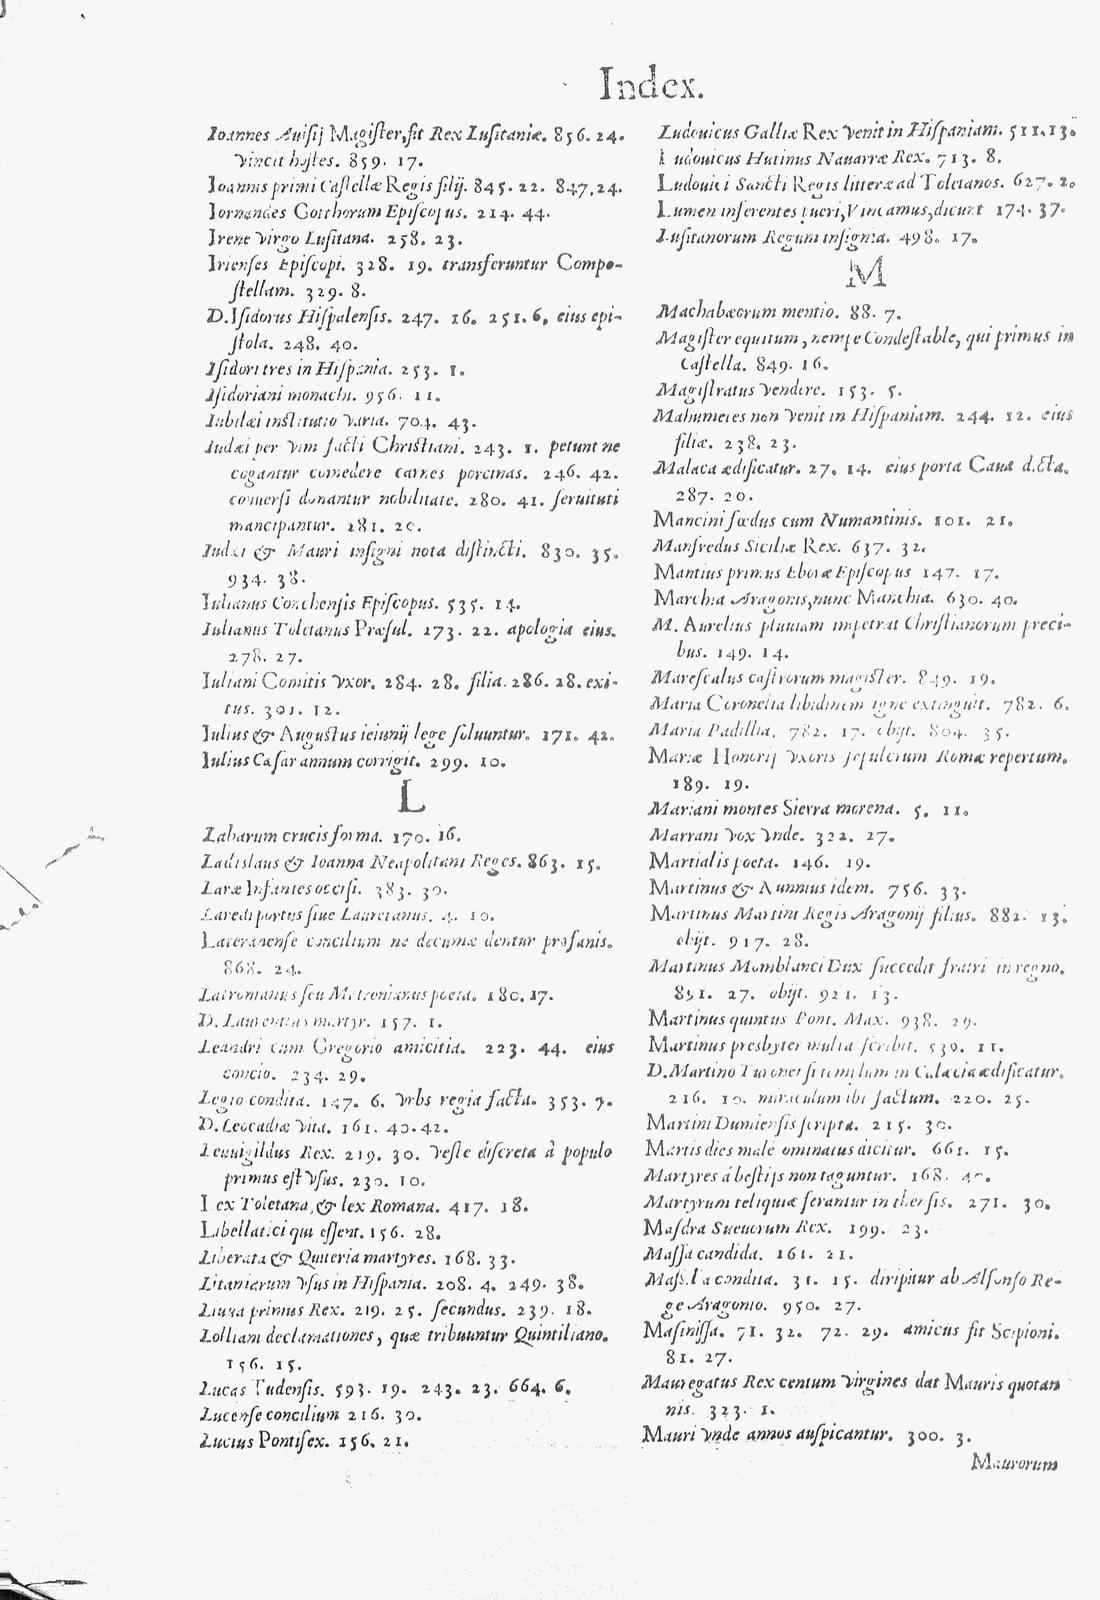 Index.
Ioannes Auisij Magister, fit Rex Lusitaniæ. 856. 24.
vincit hostes. 859. 17.
Ioannis primi Castellæ Regis filij. 845. 22. 847. 24.
Iornandes Gotthorum Episcopus. 214. 44.
Irene virgo Lusitana. 258. 23.
Irienses Episcopi. 328. 19. transferuntur Compo-
stellam. 329. 8.
D. Isidorus Hispalensis. 247. 16. 251. 6. eius epi-
stola. 248. 40.
Isidori tres in Hispania. 253. 1.
Isidoriani monachi. 956. 11.
Iubilæi institutio varia. 704. 43.
Iudæi per vim facti Christiani. 243. 1. petunt ne
cogantur comedere carnes porcinas. 246. 42.
conuersi donantur nobilitate. 280. 41. seruituti
mancipantur. 281. 20.
Iudæi & Mauri insigni nota distincti. 830. 35.
934. 38.
Iulianus Conchensis Episcopus. 535. 14.
Iulianus Toletanus Præsul. 273. 22. apologia eius.
278. 27.
Iuliani Comitis vxor. 284. 28. filia. 286. 28. exi-
tus. 301. 12.
Iulius & Augustus ieiunij lege soluuntur. 171. 42.
Iulius Cæsar annum corrigit. 299. 10.
L
Labarum crucis forma. 170. 16.
Ladislaus & Ioanna Neapolitani Reges. 863. 15.
Laræ Infantes occisi. 383. 30.
Laredi portus siue Lauretanus. 4. 10.
Lateranense concilium ne decumæ dentur profanis.
868. 24.
Latronianus seu Matronianus poeta. 180. 17.
D. Laurentius martyr. 157. 1.
Leandri cum Gregorio amicitia. 223. 44. eius
concio. 234. 29.
Legio condita. 147. 6. vrbs regia facta. 353. 7.
D. Leocadiæ vita. 161. 40. 42.
Leuuigildus Rex. 219. 30. veste discreta à populo
primus est vsus. 230. 10.
Lex Toletana, & lex Romana. 417. 18.
Libellatici qui essent. 156. 28.
Liberata & Quiteria martyres. 168. 33.
Litaniarum vsus in Hispania. 208. 4. 249. 38.
Liuua primus Rex. 219. 25. secundus. 239. 18.
Lolliani declamationes, quæ tribuuntur Quintiliano.
156. 15.
Lucas Tudensis. 593. 19. 243. 23. 664. 6.
Lucense concilium 216. 30.
Lucius Pontifex. 156. 21.
Ludouicus Galliæ Rex venit in Hispaniam. 511. 13.
Ludouicus Hutinus Nauarræ Rex. 713. 8.
Ludouici Sancti Regis litteræ ad Toletanos. 627. 2.
Lumen inferentes pueri, Vincamus, dicunt 174. 37.
Lusitanorum Regum insignia. 498. 17.
M
Machabæorum mentio. 88. 7.
Magister equitum, nempe Condestable, qui primus in
Castella. 849. 16.
Magistratus vendere. 153. 5.
Mahumetes non venit in Hispaniam. 244. 12. eius
filiæ. 238. 23.
Malaca ædificatur. 27. 14. eius porta Caua dicta.
287. 20.
Mancini fœdus cum Numantinis. 101. 21.
Manfredus Siciliæ Rex. 637. 32.
Mantius primus Eboræ Episcopus 147. 17.
Marchia Aragonis, nunc Manchia. 630. 40.
M. Aurelius pluuiam impetrat Christianorum preci-
bus. 149. 14.
Marescalus castrorum magister. 849. 19.
Maria Coronelia libidinem igne extinguit. 782. 6.
Maria Padillia. 782. 17. obijt. 804. 35.
Mariæ Honorij vxoris sepulcrum Romæ repertum.
189. 19.
Mariani montes Sierra morena. 5. 11.
Marrani vox vnde. 322. 27.
Martialis poeta. 146. 19.
Martinus & Nunnius idem. 756. 33.
Martinus Martini Regis Aragonij filius. 882. 13.
obijt. 917. 28.
Martinus Momblanci Dux succedit fratri in regno.
851. 27. obijt. 921. 13.
Martinus quintus Pont. Max. 938. 29.
Martinus presbyter multa scribit. 530. 11.
D. Martino Turonensi templum in Galæcia ædificatur.
216. 10. miraculum ibi factum. 220. 25.
Martini Dumiensis scripta. 215. 30.
Martis dies male ominatus dicitur. 661. 15.
Martyres á bestijs non taguntur. 168.
Martyrum reliquiæ ferantur in thersis. 271. 30.
Masdra Sueuorum Rex. 199. 23.
Massa candida. 161. 21.
Massilia condita. 31. 15. diripitur ab Alfonso Re-
ge Aragonio. 950. 27.
Masinissa. 71. 32. 72. 29. amicus fit Scipioni.
81. 27.
Mauregatus Rex centum virgines dat Mauris quotan
nis. 323. 1.
Mauri vnde annos auspicantur. 300. 3.
Maurorum